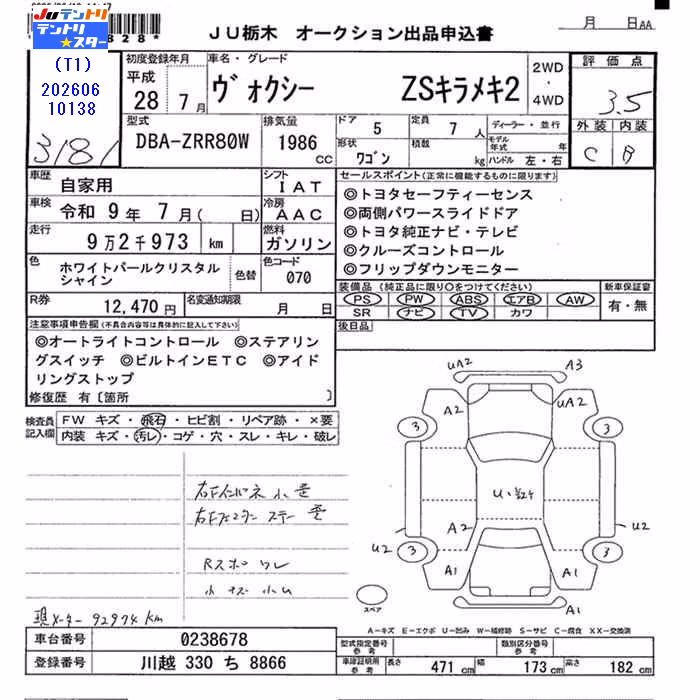 JUテントリ
テントリ★スター
828*
(T1)
202606
10138
3181
JU栃木 オークション出品申込書
月 日AA
初度登録年月
平成
28 7月
車名・グレード
ヴォクシー ZSキラメキ2
2WD
・
4WD
評価点
3.5
外装 内装
C B
型式
DBA-ZRR80W
排気量
1986 cc
ドア 5
定員 7人
ディーラー・並行
形状 ワゴン
積載 kg
モデル年式 年
ハンドル 左・右
車歴 自家用
シフト IAT
車検 令和 9年 7月( 日)
冷房 AAC
走行 9万2千973 km
燃料 ガソリン
色 ホワイトパールクリスタル
シャイン
色替
色コード 070
R券 12,470円
名変通知期限 月 日
セールスポイント(正常に機能するものに限ります)
◎トヨタセーフティーセンス
◎両側パワースライドドア
◎トヨタ純正ナビ・テレビ
◎クルーズコントロール
◎フリップダウンモニター
装備品 (純正品に限り○をつけてください)
PS PW ABS エアB AW
SR ナビ TV カワ
新車保証書
有・無
後日品
注意事項申告欄(不具合内容等は具体的に記入して下さい)
◎オートライトコントロール ◎ステアリン
グスイッチ ◎ビルトインETC ◎アイド
リングストップ
修復歴 有〔箇所 〕
検査員
記入欄
FW キズ・飛石・ヒビ割・リペア跡・×要
内装 キズ・汚レ・コゲ・穴・スレ・キレ・破レ
Rスポ ワレ
現メーター 92974 km
UA2 A3
A2 UA2
3 3
U・
A2
U2 U2
3 3
A1 A1
A1
スペア
A−キズ E−エクボ U−凹み W−補修跡 S−サビ C−腐食 XX−交換済
車台番号 0238678
登録番号 川越 330 ち 8866
型式指定番号
参考
類別区分番号
参考
車庫証明用
参考
長さ 471 cm 幅 173 cm 高さ 182 cm